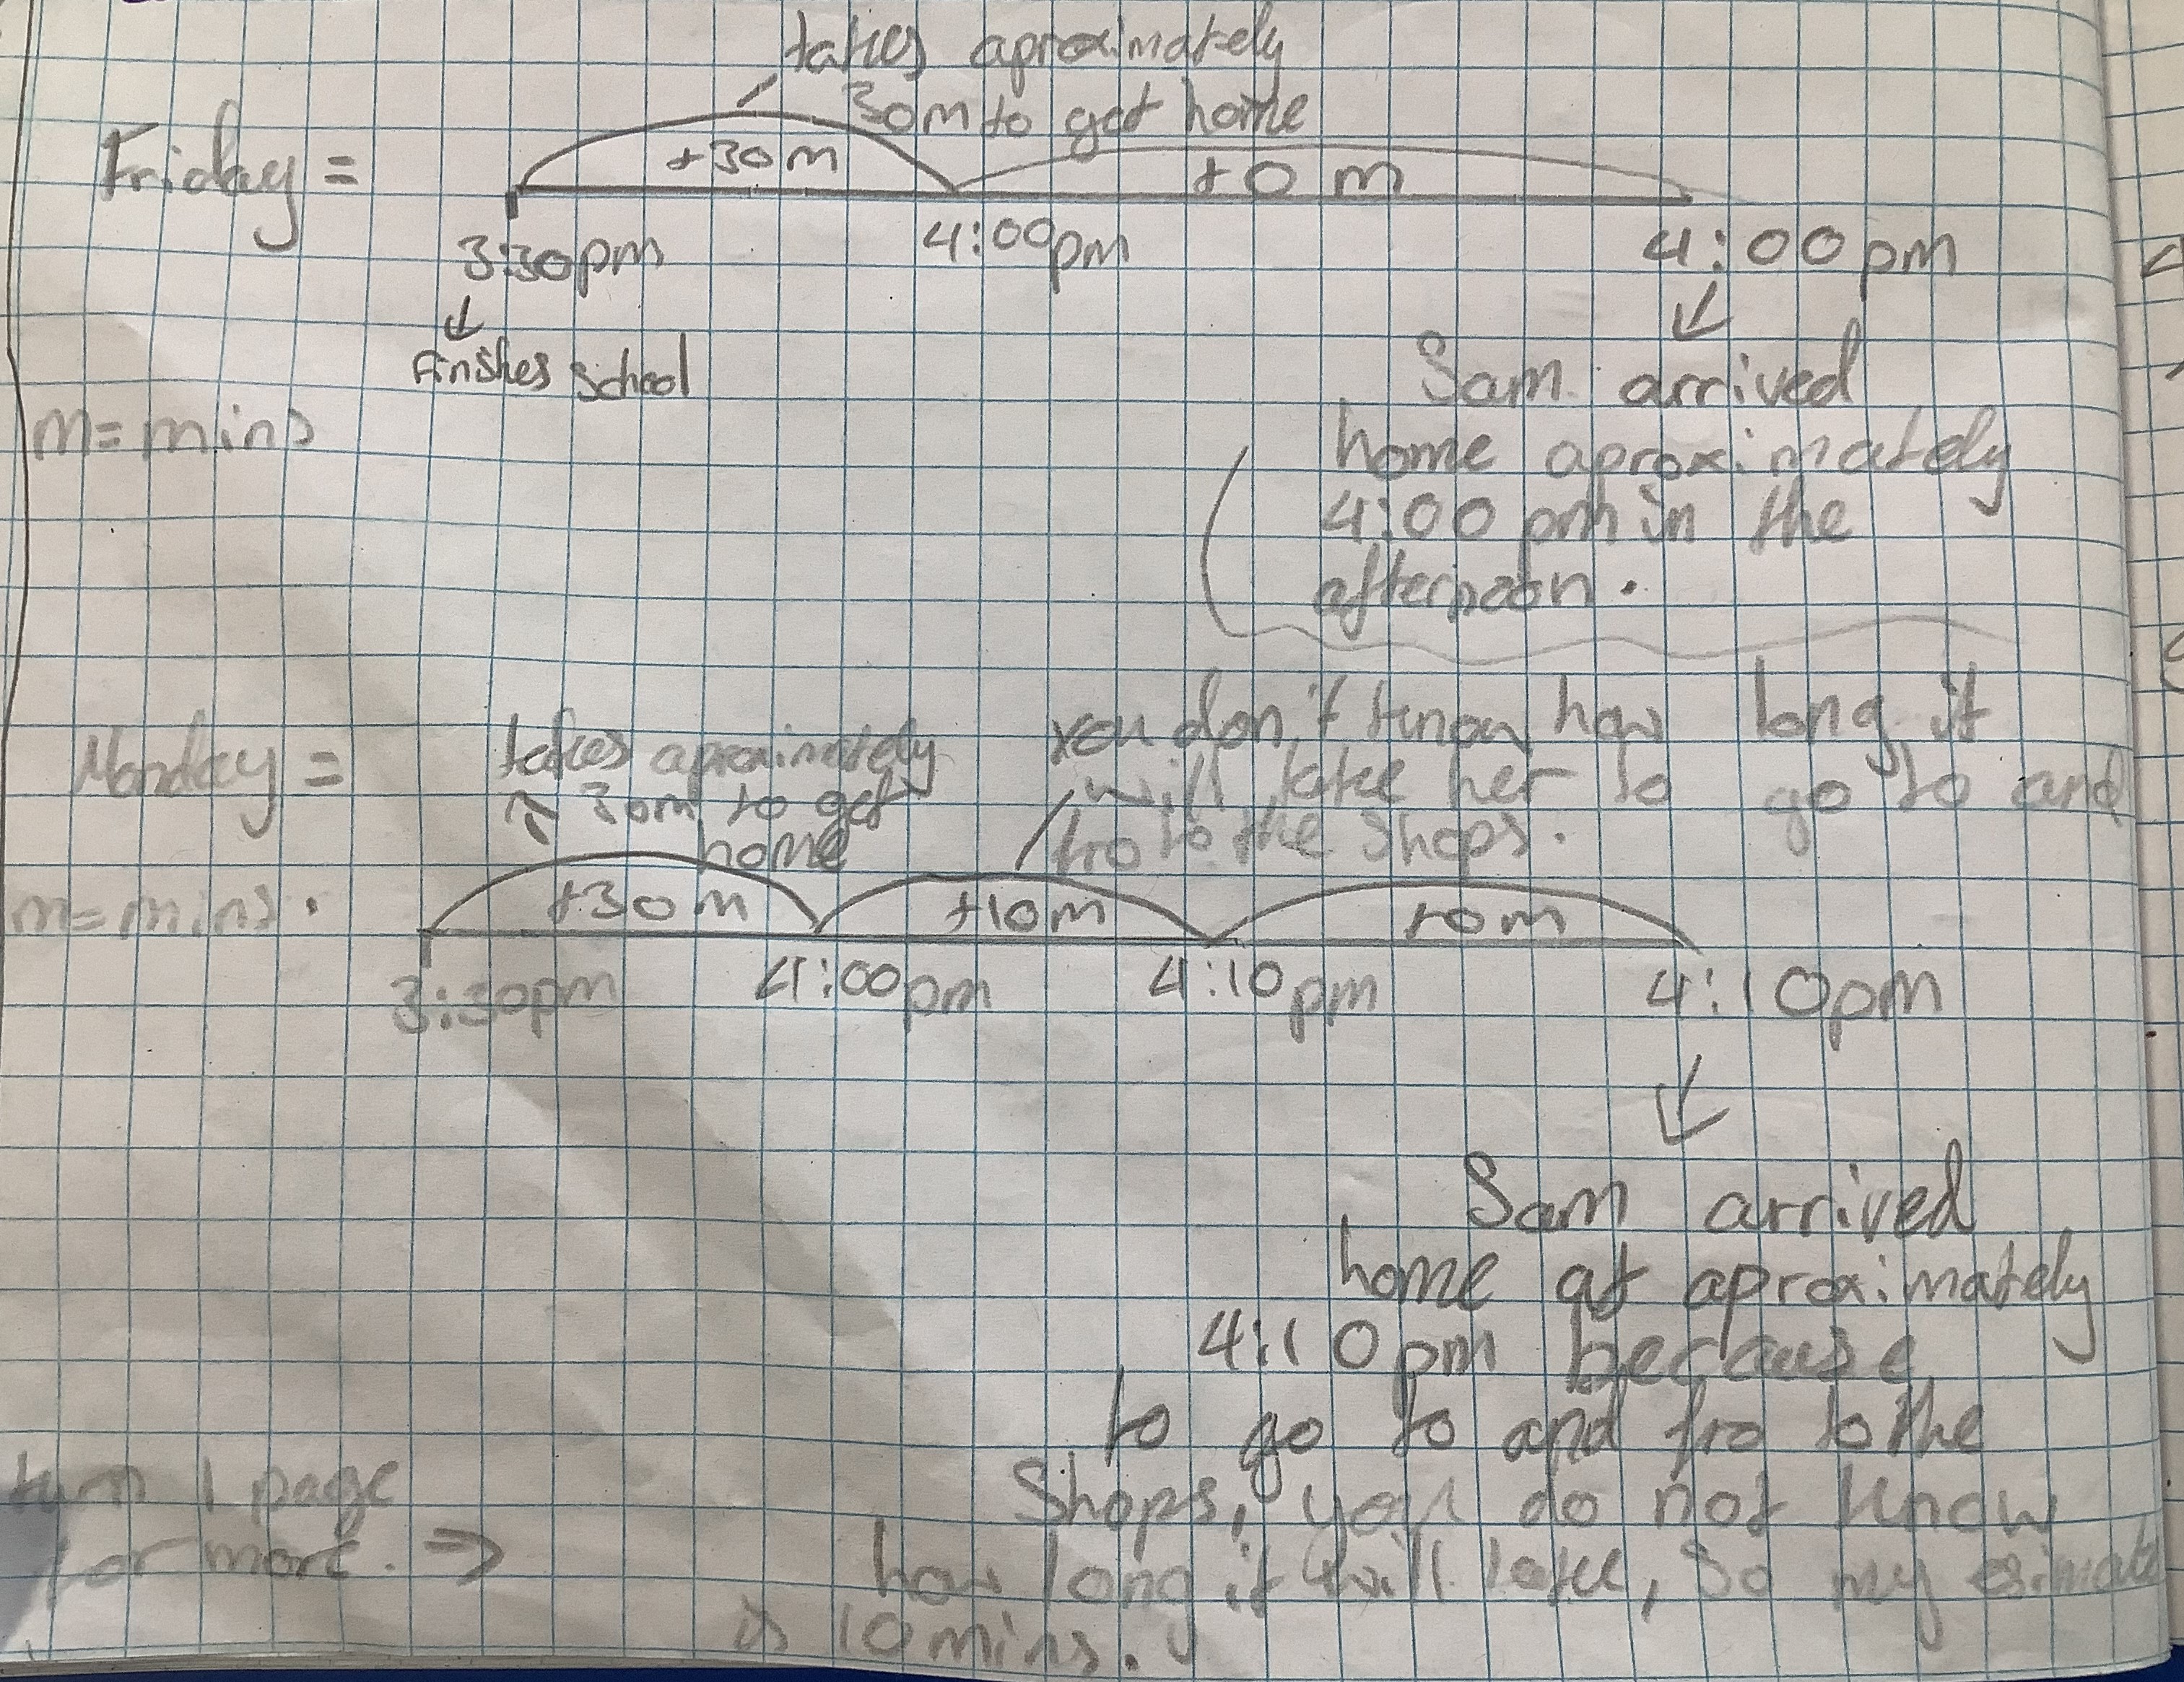 takes aproximately
30m to get home
Friday =
+30m
+0 m
3:30pm
4:00pm
4:00pm
↓
↓
finishes school
Sam arrived
m=mins
home aproximately
4:00 pm in the
afternoon.
Monday =
takes aproximately
↑ 30m to get
home
you don't know how long it
will take her to go to and
fro to the shops.
m=mins.
+30m
+10m
+0m
3:30pm
4:00pm
4:10pm
4:10pm
↓
Sam arrived
home at aproximately
4:10pm because
to go to and fro to the
Shops, you do not know
how long it will take, So my esimate
is 10 mins.
turn 1 page
for more. →